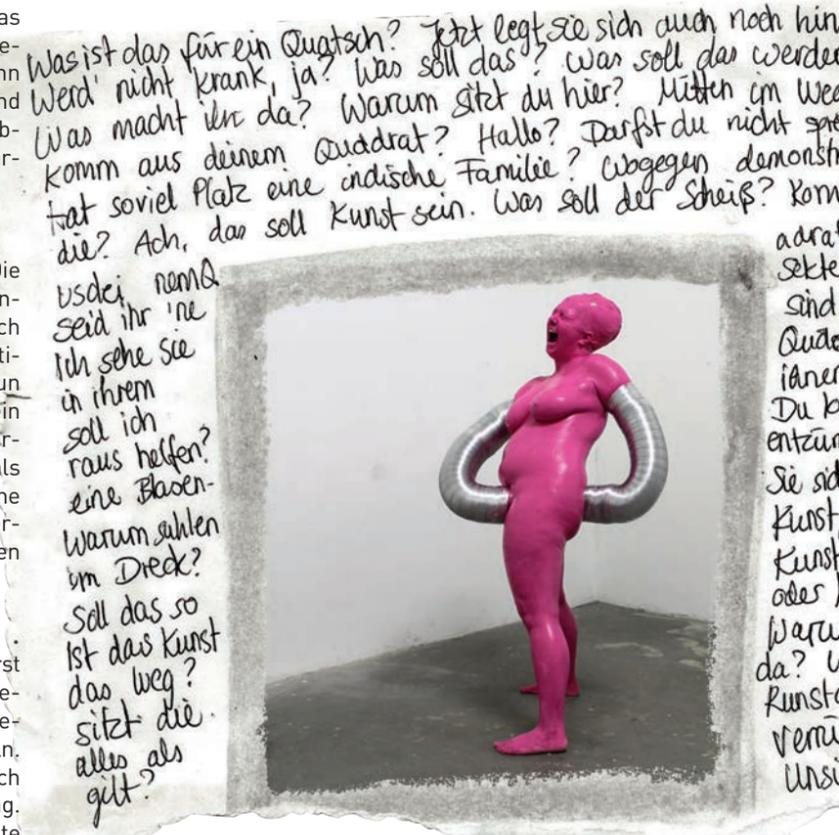 as
e-
nn
nd
b-
r-
Die
n-
ch
ti-
un
ein
r-
als
ne
r-
en
.
rst
e-
e-
n.
ch
g.
te
Was ist das für ein Quatsch? Jetzt legt sie sich auch noch hin
Werd' nicht krank, ja? Was soll das? Was soll das werde
Was macht ihr da? Warum sitzt du hier? Mitten im We
Komm aus deinem Quddrat? Hallo? Darfst du nicht
hat soviel Platz eine indische Familie? Wogegen demonst
die? Ach, das soll Kunst sein. Was soll der Scheiß? Kom
usdei nemQ
seid ihr 'ne
Ich sehe sie
in ihrem
soll ich
raus helfen?
eine Blasen-
Warum suhlen
im Dreck?
Soll das so
Ist das Kunst
das weg?
sitzt die.
alles als
gilt?
adrat
sekte
sind
Quad
idner
Du b
entzün
Sie sid
Kunst
Kunst
oder
Waru
da?
Kunst
verrü
Unsi